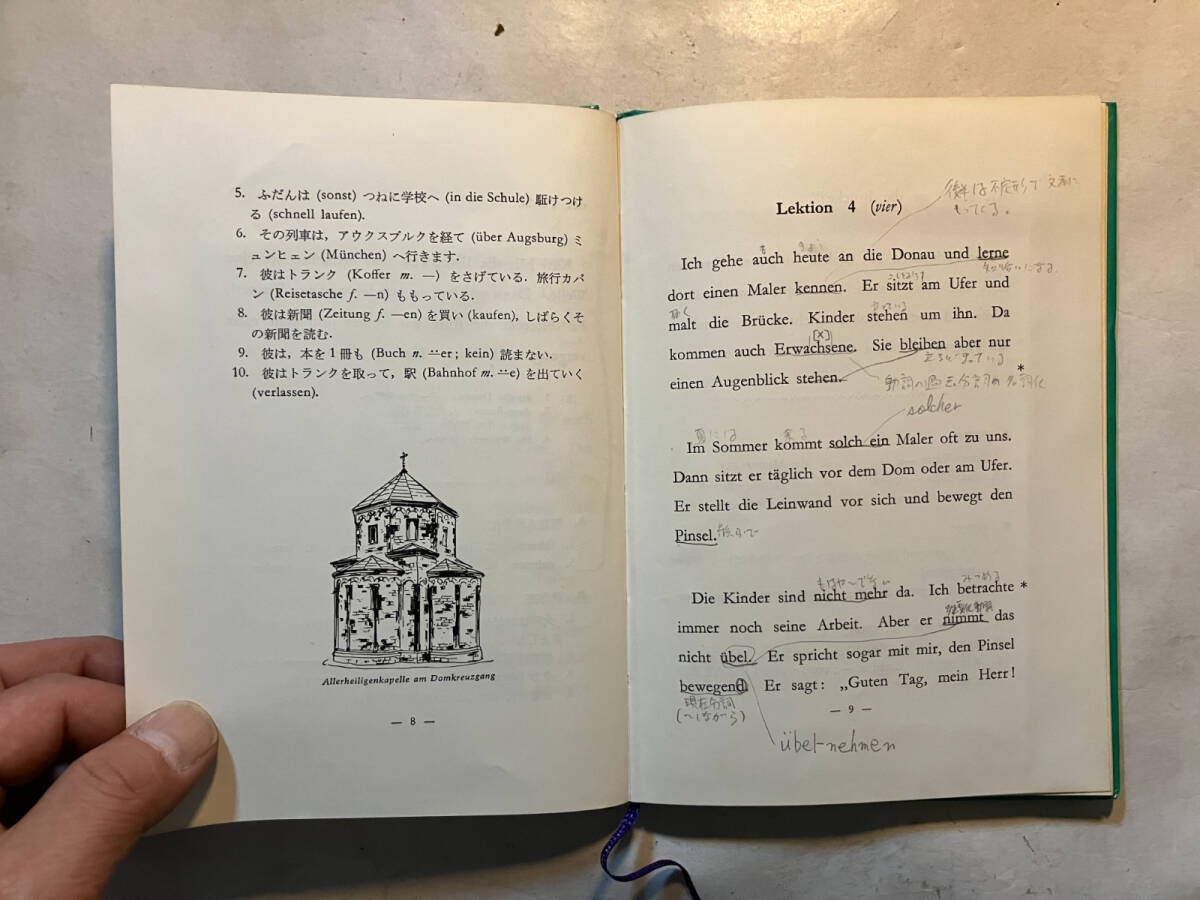 5. ふだんは (sonst) つねに学校へ (in die Schule) 駆けつけ
る (schnell laufen).
6. その列車は, アウクスブルクを経て (über Augsburg) ミ
ュンヒェン (München) へ行きます.
7. 彼はトランク (Koffer m. —) をさげている. 旅行カバ
ン (Reisetasche f. —n) ももっている.
8. 彼は新聞 (Zeitung f. —en) を買い (kaufen), しばらくそ
の新聞を読む.
9. 彼は, 本を1冊も (Buch n. ⸚er; kein) 読まない.
10. 彼はトランクを取って, 駅 (Bahnhof m. ⸚e) を出ていく
(verlassen).
Allerheiligenkapelle am Domkreuzgang
— 8 —
後半は不定形で文末に
もってくる。
Lektion 4 (vier)
Ich gehe auch heute an die Donau und lerne
知り合いになる
dort einen Maler kennen. Er sitzt am Ufer und
malt die Brücke. Kinder stehen um ihn. Da
[x]
kommen auch Erwachsene. Sie bleiben aber nur
立ちどまっている
einen Augenblick stehen. *
動詞の過去分詞の名詞化
solcher
夏には 来る
Im Sommer kommt solch ein Maler oft zu uns.
Dann sitzt er täglich vor dem Dom oder am Ufer.
Er stellt die Leinwand vor sich und bewegt den
Pinsel.
もはや〜でない みつめる
Die Kinder sind nicht mehr da. Ich betrachte *
immer noch seine Arbeit. Aber er nimmt das
nicht übel. Er spricht sogar mit mir, den Pinsel
bewegend. Er sagt: „Guten Tag, mein Herr!
現在分詞
(〜しながら)
— 9 —
übel-nehmen